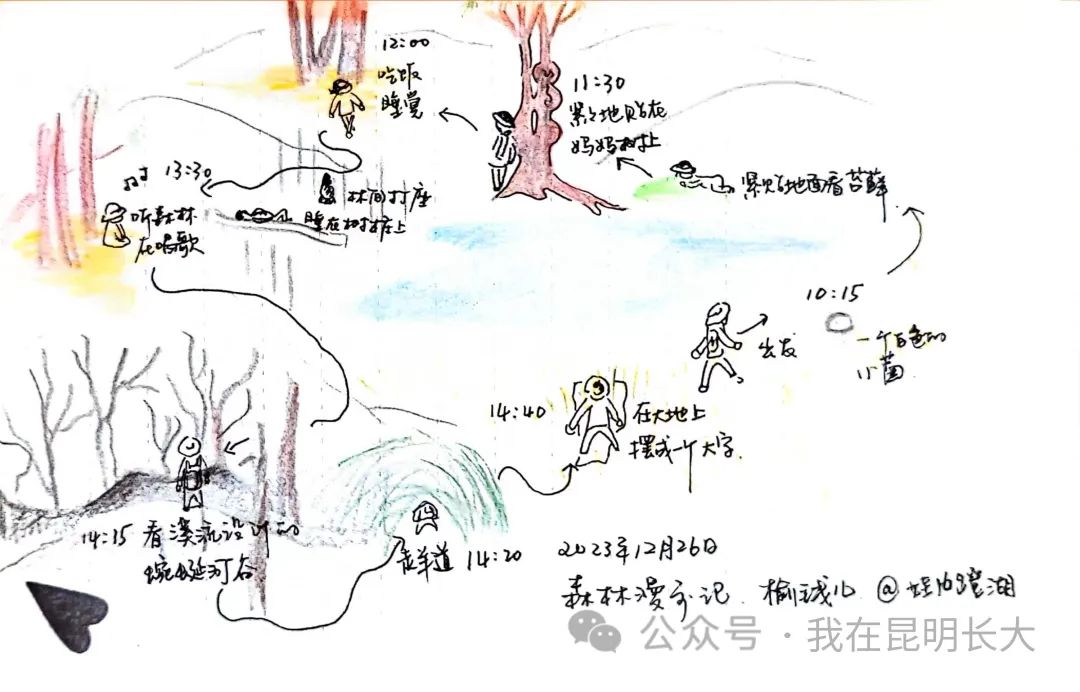 出发
10:15
一个白色的
小菌
紧贴地面看苔藓
11:30
紧紧地贴在
妈妈树上
12:00
吃饭
睡觉
林间打座
睡在树桩上
13:30
听森林
在唱歌
14:15 看溪流设计的
蜿蜒河谷
走羊道 14:20
14:40
在大地上
摆成一个大字
2023年12月26日
森林漫步记
公众号·我在昆明长大